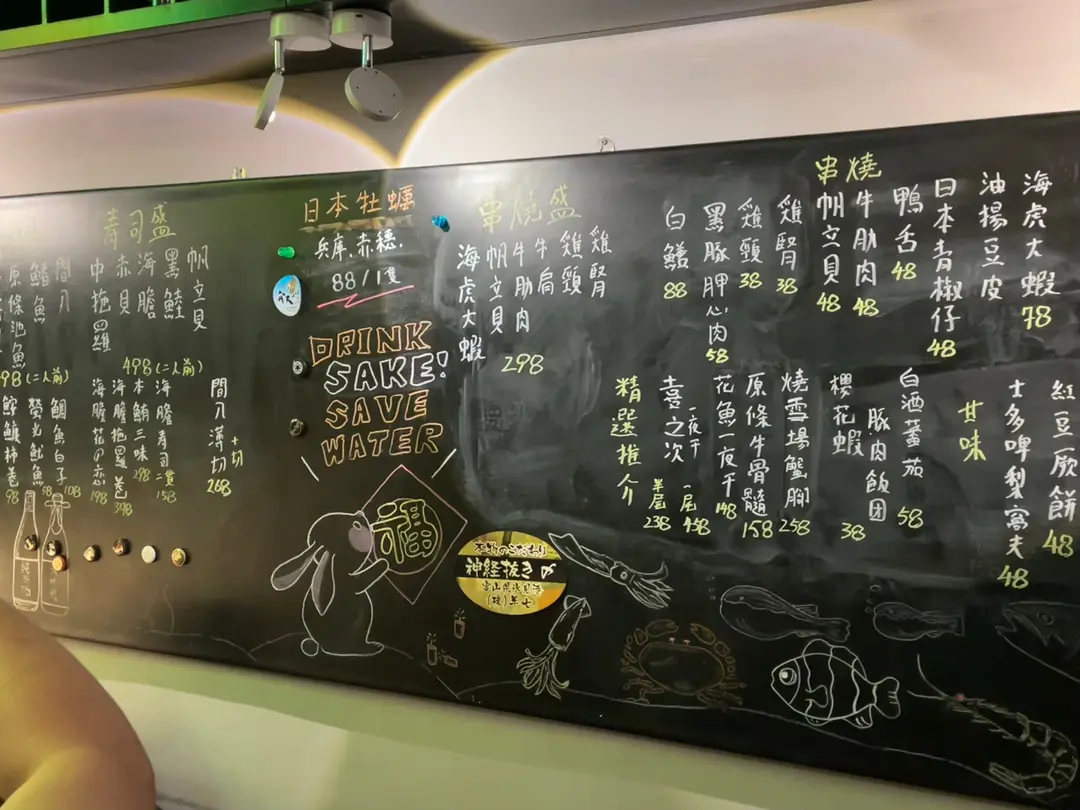 寿司盛
帆立貝
黑鮭
海膽
赤貝
中拖羅
498(二人前)
間八
鰭魚
原條池魚
98(二人前)
間八薄切
268
海膽寿司二貫
158
本鮪三味
298
海膽拖羅巻
398
海膽花の恋
198
鯛魚白子
108
螢光魷魚
98
98
日本牡蠣
兵庫.赤穗.
88/1隻
DRINK
SAKE!
SAVE
WATER
福
串燒盛
雞腎
雞頸
牛肩
牛肋肉
帆立貝
海虎大蝦
298
本物のこだわり
神経抜き〆
串燒
海虎大蝦
78
油揚豆皮
日本青椒仔
48
鴨舌
48
牛肋肉
48
帆立貝
48
雞腎
38
雞頸
38
黑豚胛心肉
58
白鱔
88
精選推介
喜之次一夜干
一尾
458
半尾
238
花魚一夜干
148
原條牛骨髓
158
燒雪場蟹腳
258
櫻花蝦
豚肉飯团
38
白酒蕃茄
58
甘味
紅豆厥餅
48
士多啤梨窩夫
48